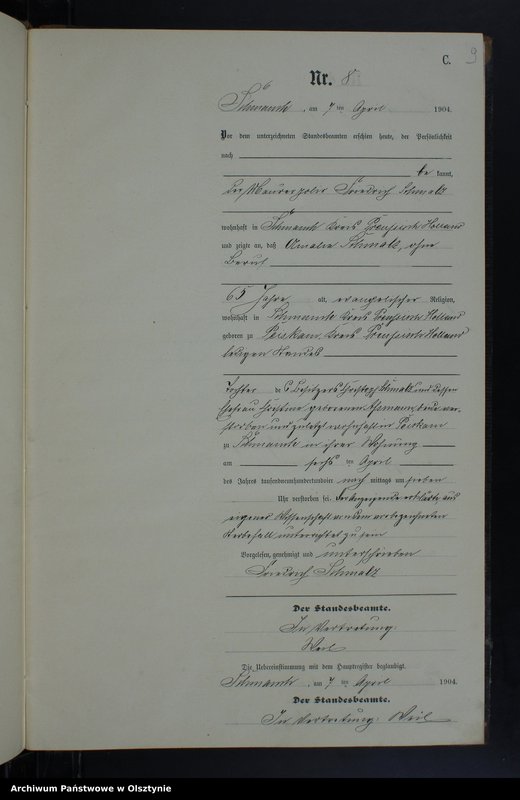 C. 9
Nr. 8
Schmauch, am 7 ten April 1904.
Vor dem unterzeichneten Standesbeamten erschien heute, der Persönlichkeit
nach
be kannt,
der Maurerpolier Friedrich Schmalz
wohnhaft in Schmauch Kreis Preußisch Holland
und zeigte an, daß Amalie Schmalz, ohne
Beruf
65 Jahre alt, evangelischer Religion,
wohnhaft in Schmauch Kreis Preußisch Holland
geboren zu Peiskam Kreis Preußisch Holland
ledigen Standes
Tochter des Besitzers Christoph Schmalz und dessen
Ehefrau geborenen beide ver-
storben und zuletzt wohnhaft in Peiskam
zu Schmauch in ihrer Wohnung
am sechs ten April
des Jahres tausendneunhundertundvier nach mittags um sieben
Uhr verstorben sei. Der Anzeigende erklärte, aus
eigener Wissenschaft von dem vorbezeichneten
Sterbefall unterrichtet zu sein
Vorgelesen, genehmigt und unterschrieben
Friedrich Schmalz
Der Standesbeamte.
In Vertretung:
Weil
Die Uebereinstimmung mit dem Hauptregister beglaubigt.
Schmauch, am 7 ten April 1904.
Der Standesbeamte.
In Vertretung: Weil
Archiwum Państwowe w Olsztynie